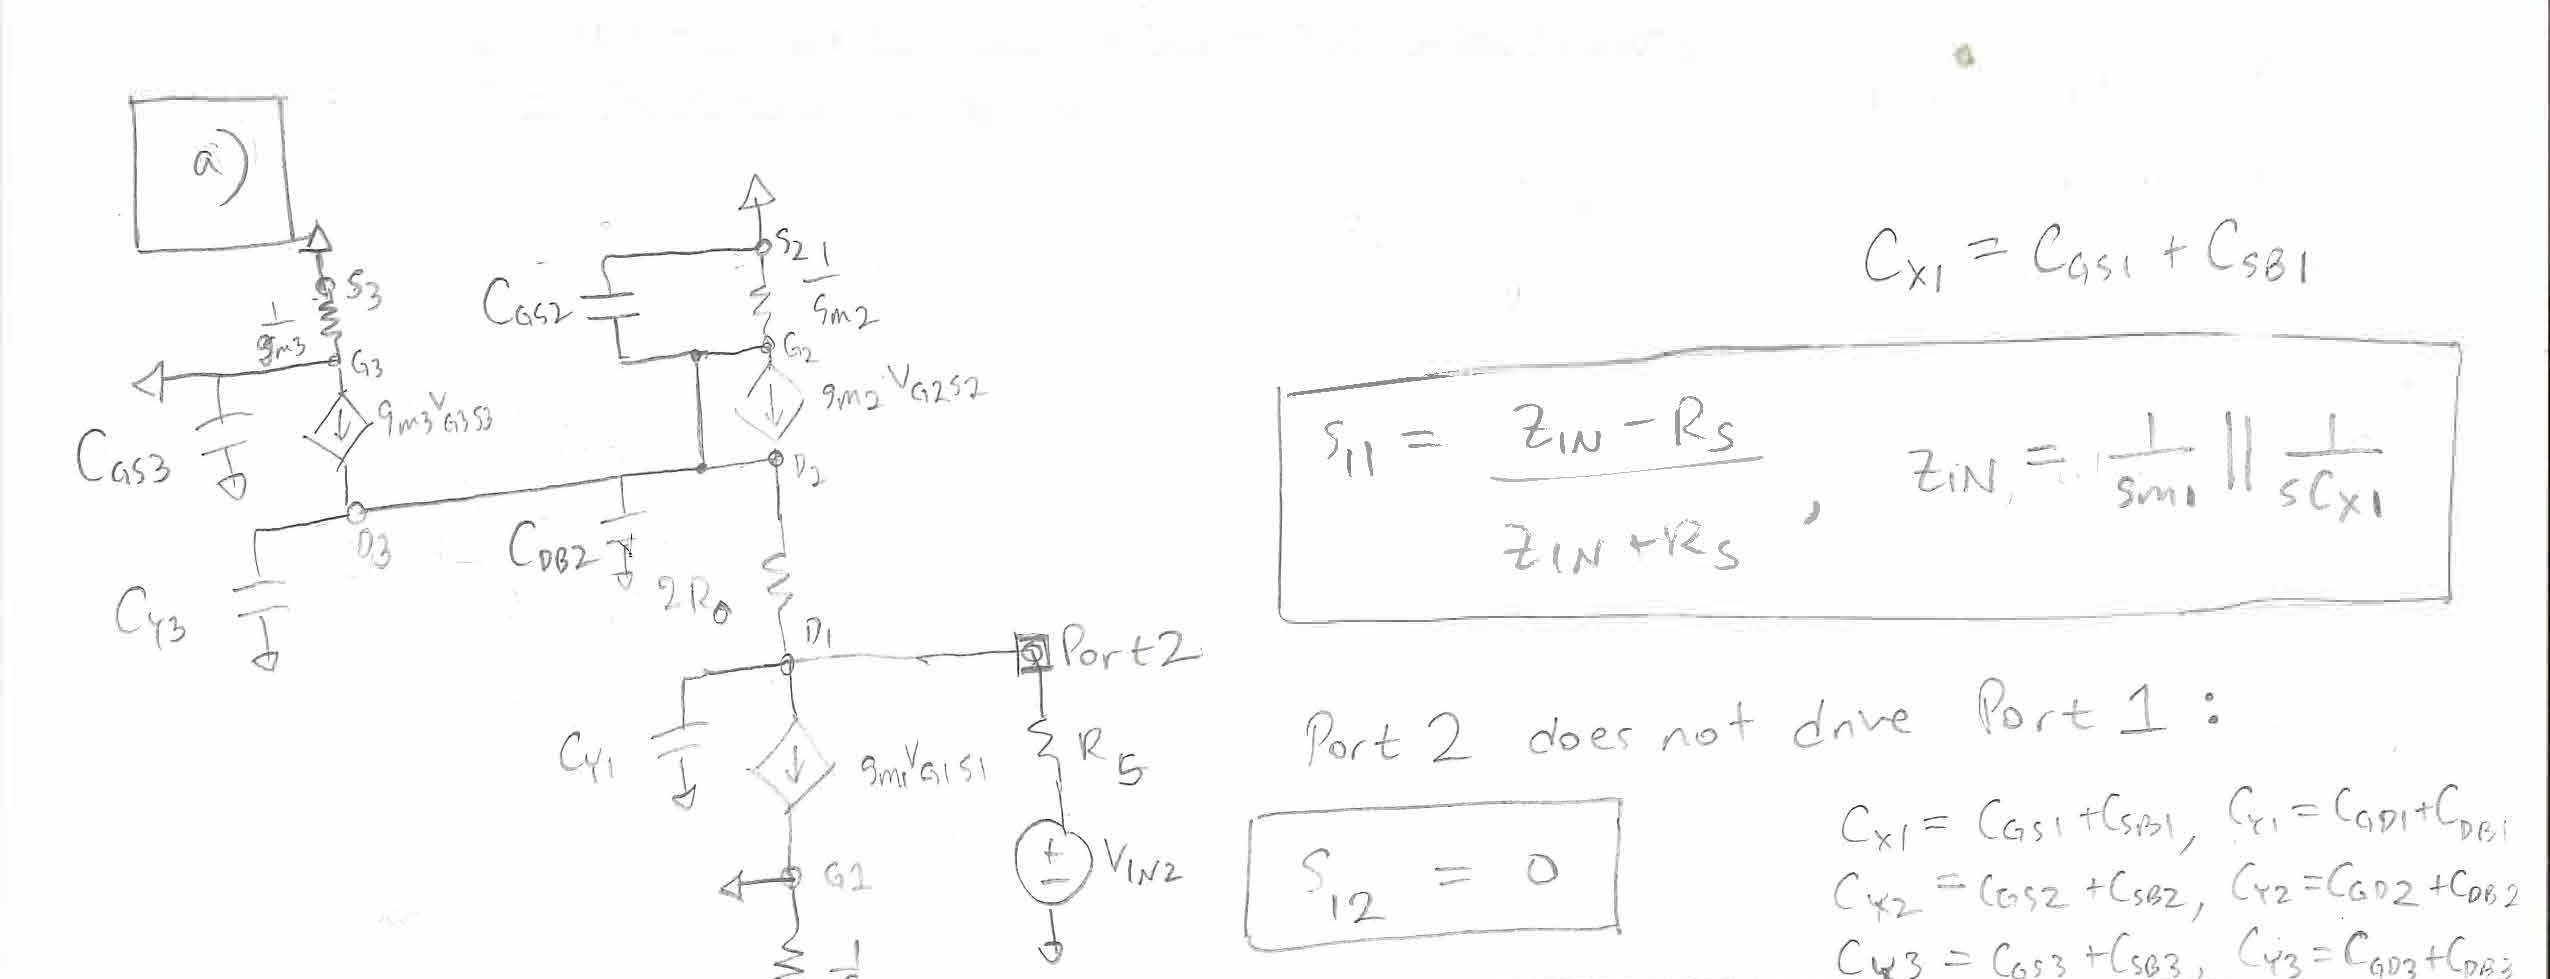 a)
S3
1/gm3
G3
gm3 VG3S3
CGS3
D3
CY3
S2
1/gm2
CGS2
G2
gm2 VG2S2
D2
CDB2
2R0
D1
Port2
CY1
gm1 VG1S1
RS
VIN2
G1
1
CX1 = CGS1 + CSB1
S11 = (ZIN - RS)/(ZIN + RS), ZIN = 1/gm1 || 1/sCX1
Port 2 does not drive Port 1:
S12 = 0
CX1 = CGS1 + CSB1, CY1 = CGD1 + CDB1
CX2 = CGS2 + CSB2, CY2 = CGD2 + CDB2
CX3 = CGS3 + CSB3, CY3 = CGD3 + CDB3